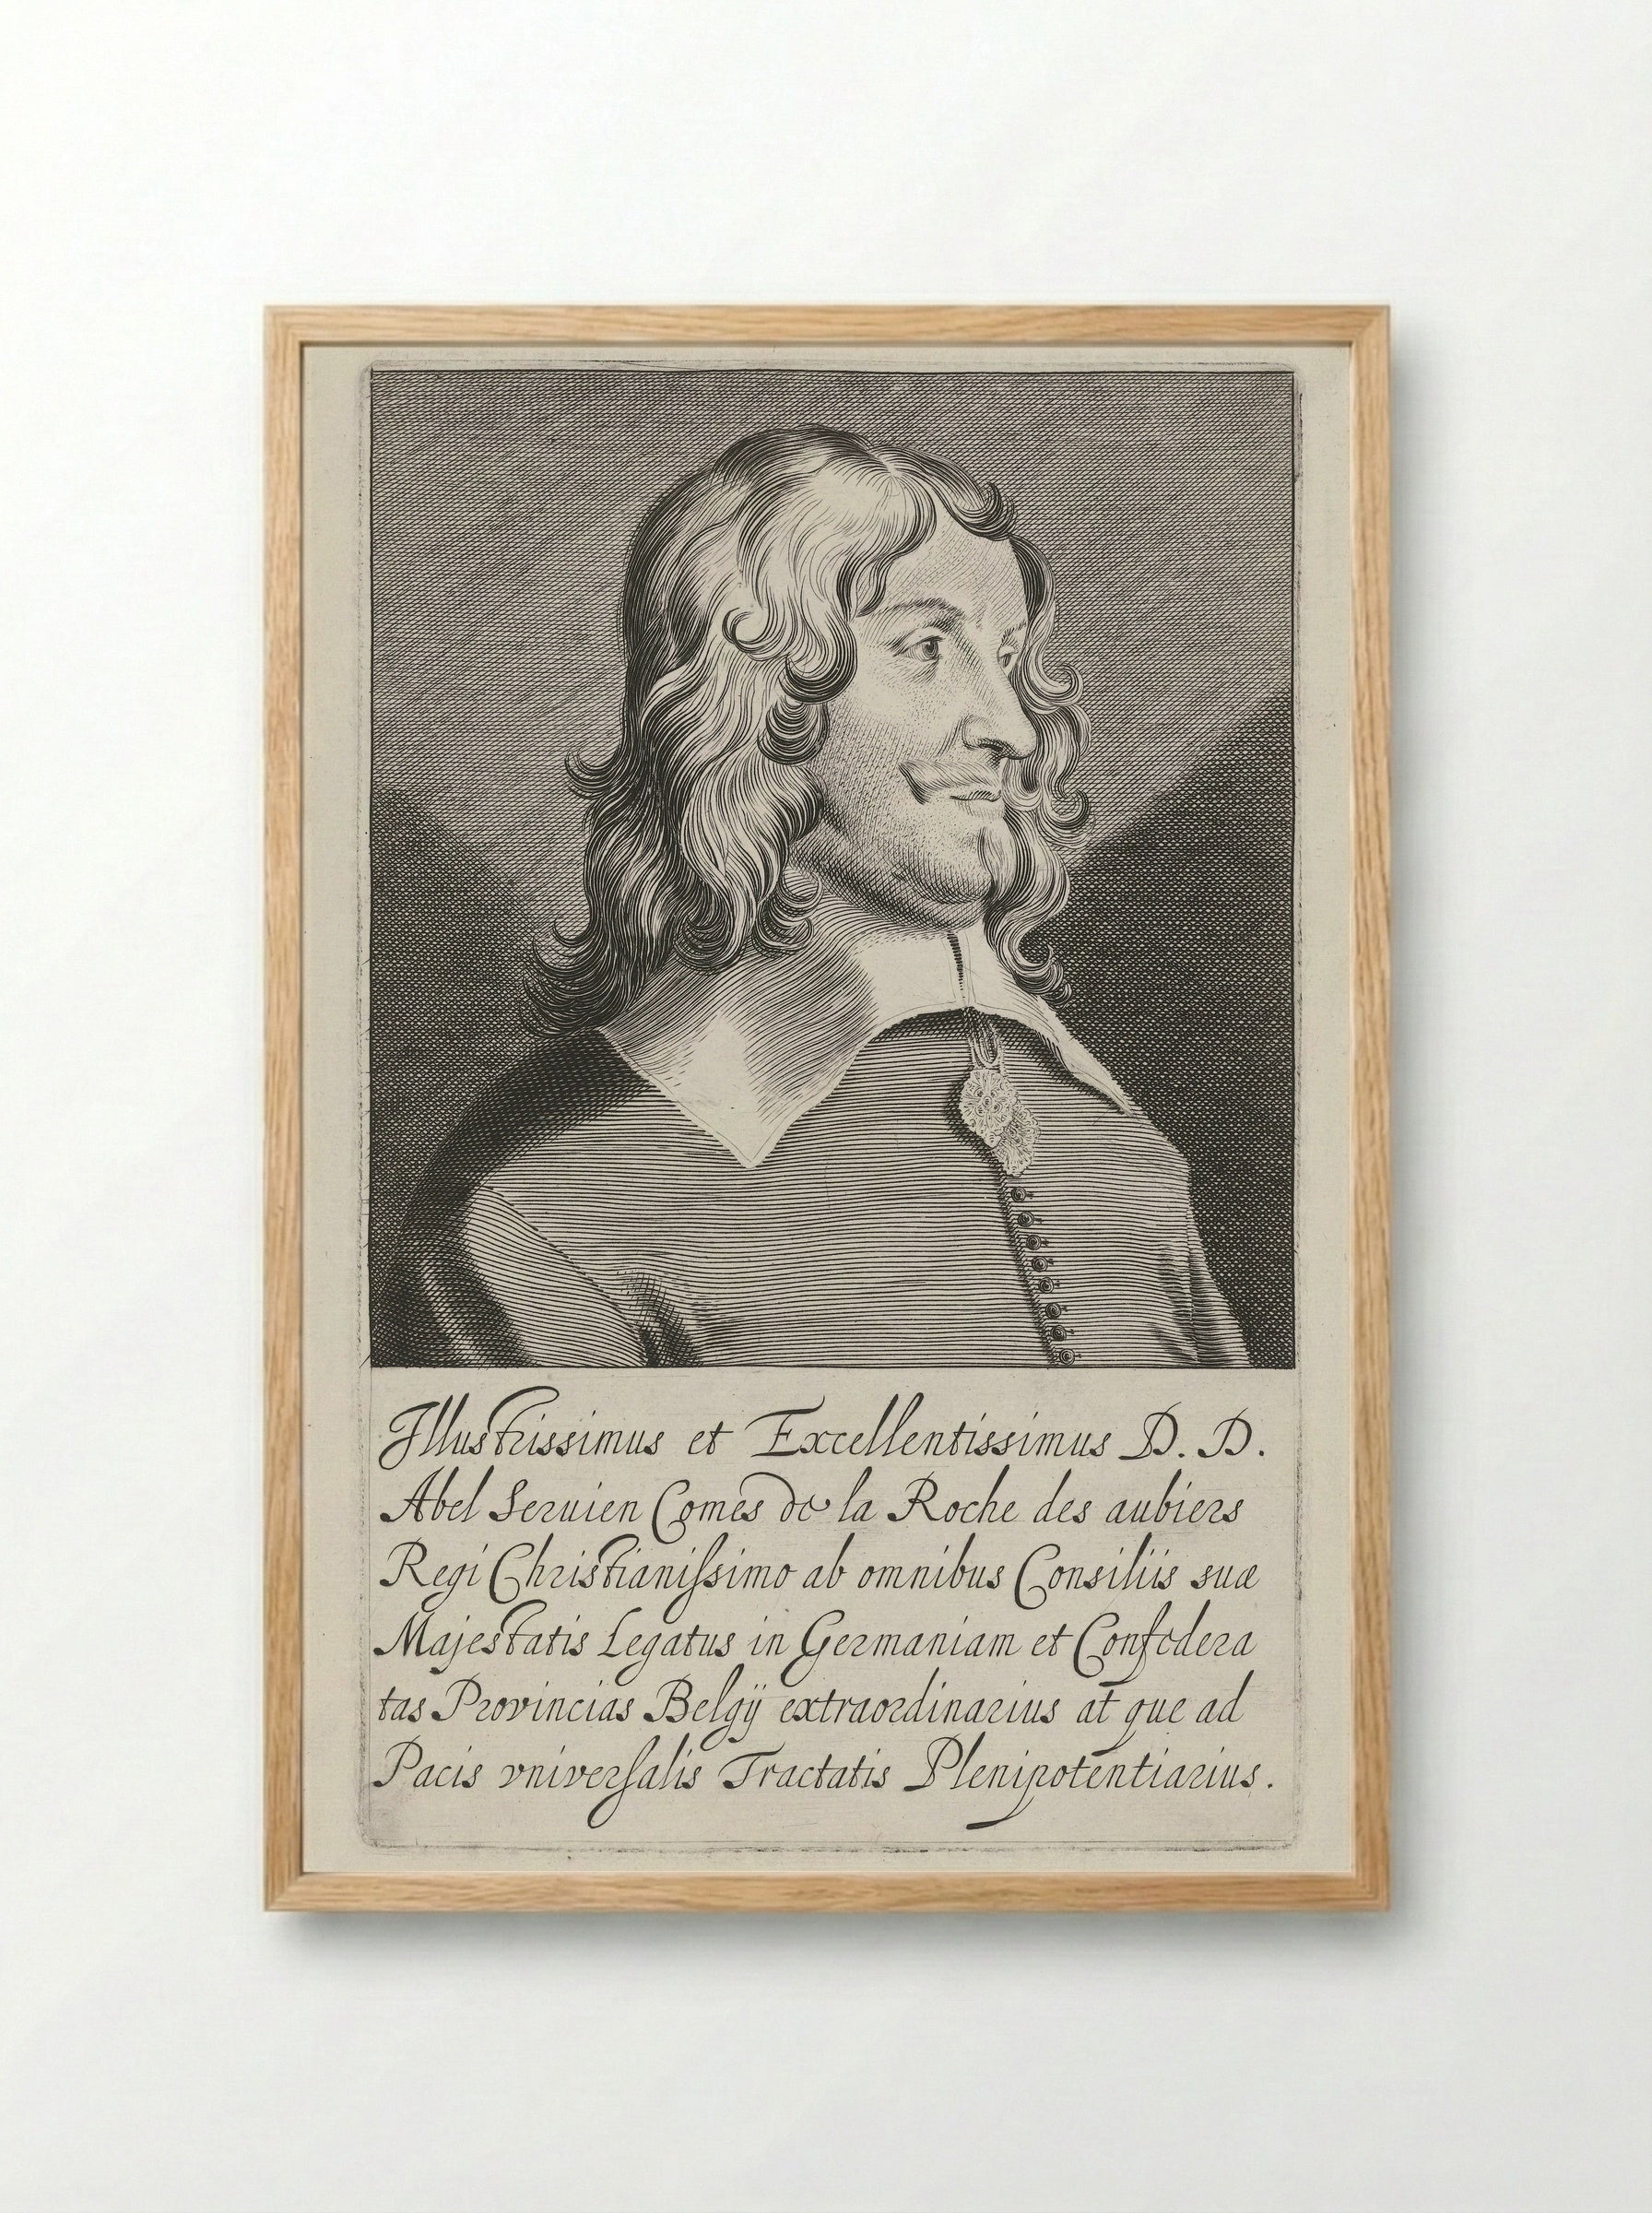 Illustrissimus et Excellentissimus D. D.
Abel Seruien Comes de la Roche des aubiers
Regi Christianiſsimo ab omnibus Consiliis suæ
Majestatis Legatus in Germaniam et Confœdera
tas Provincias Belgÿ extraordinarius at que ad
Pacis vniverſalis Tractatis Plenipotentiarius.